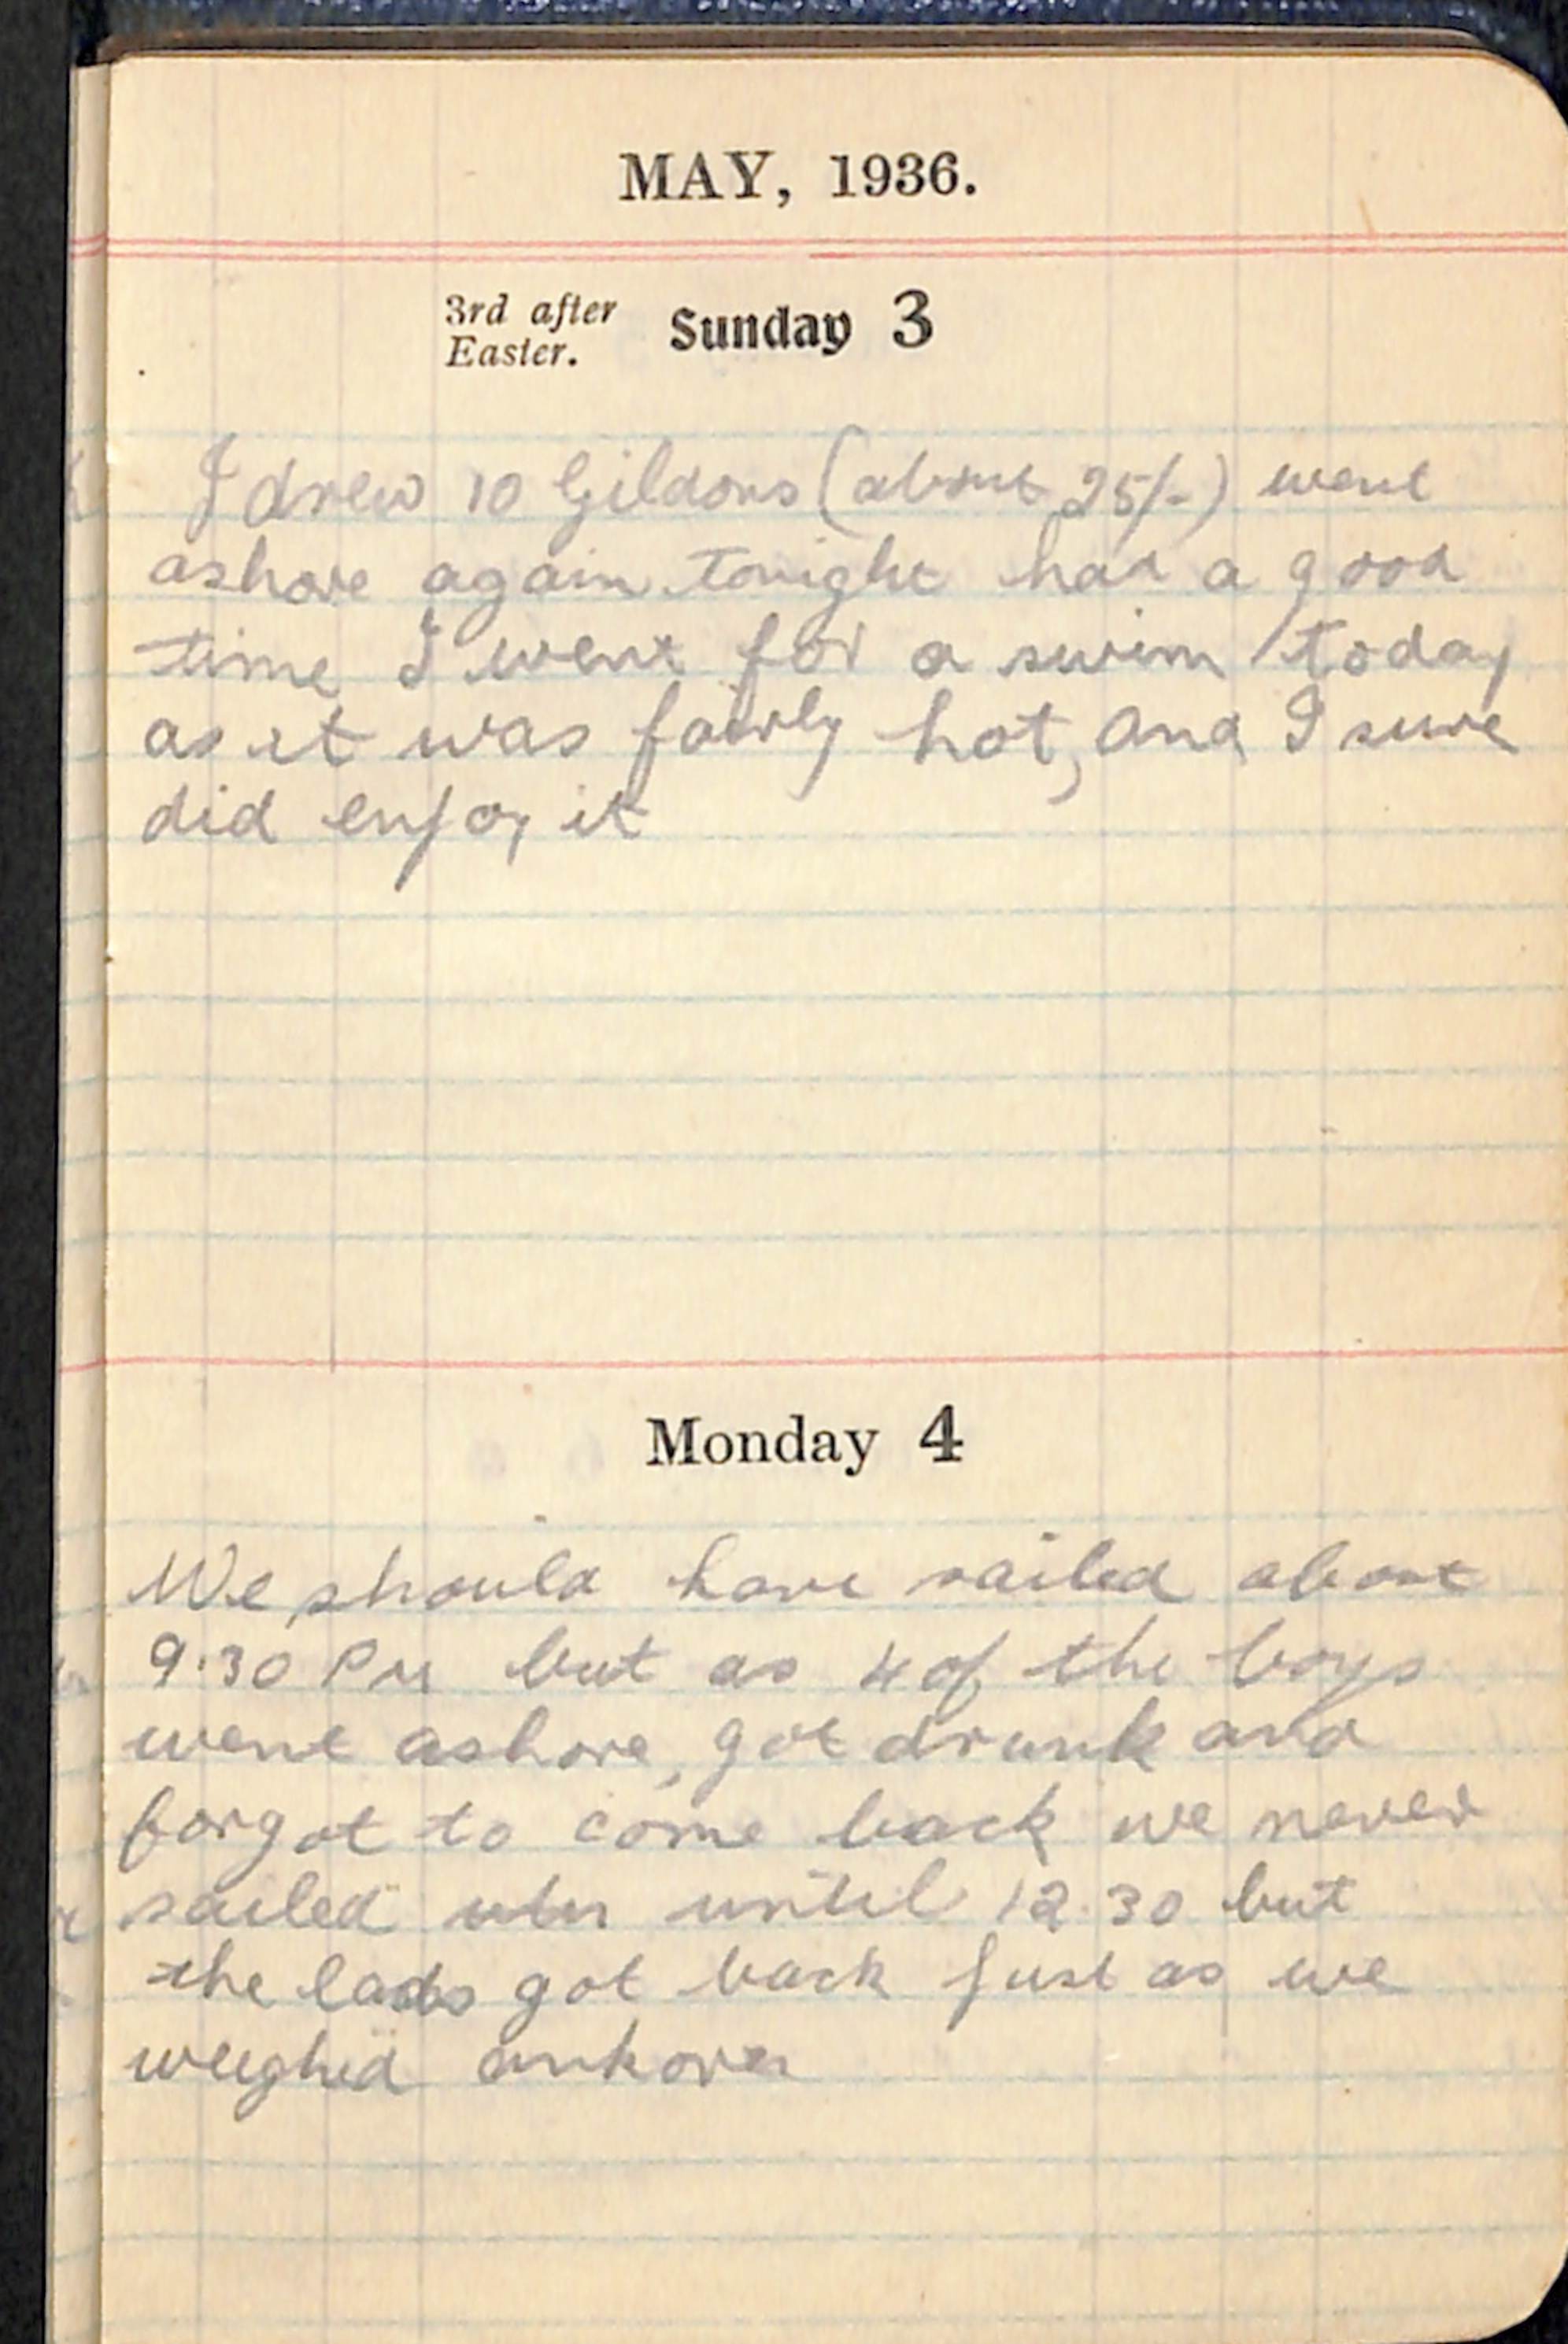 MAY, 1936.
3rd after
Easter. Sunday 3
I drew 10 Gildons (about 25/-) went
ashore again tonight had a good
time I went for a swim today
as it was fairly hot, and I sure
did enjoy it
Monday 4
We should have sailed about
9.30 PM but as 4 of the boys
went ashore, got drunk and
forgot to come back we never
sailed until 12.30 but
the lads got back just as we
weighed ankorer